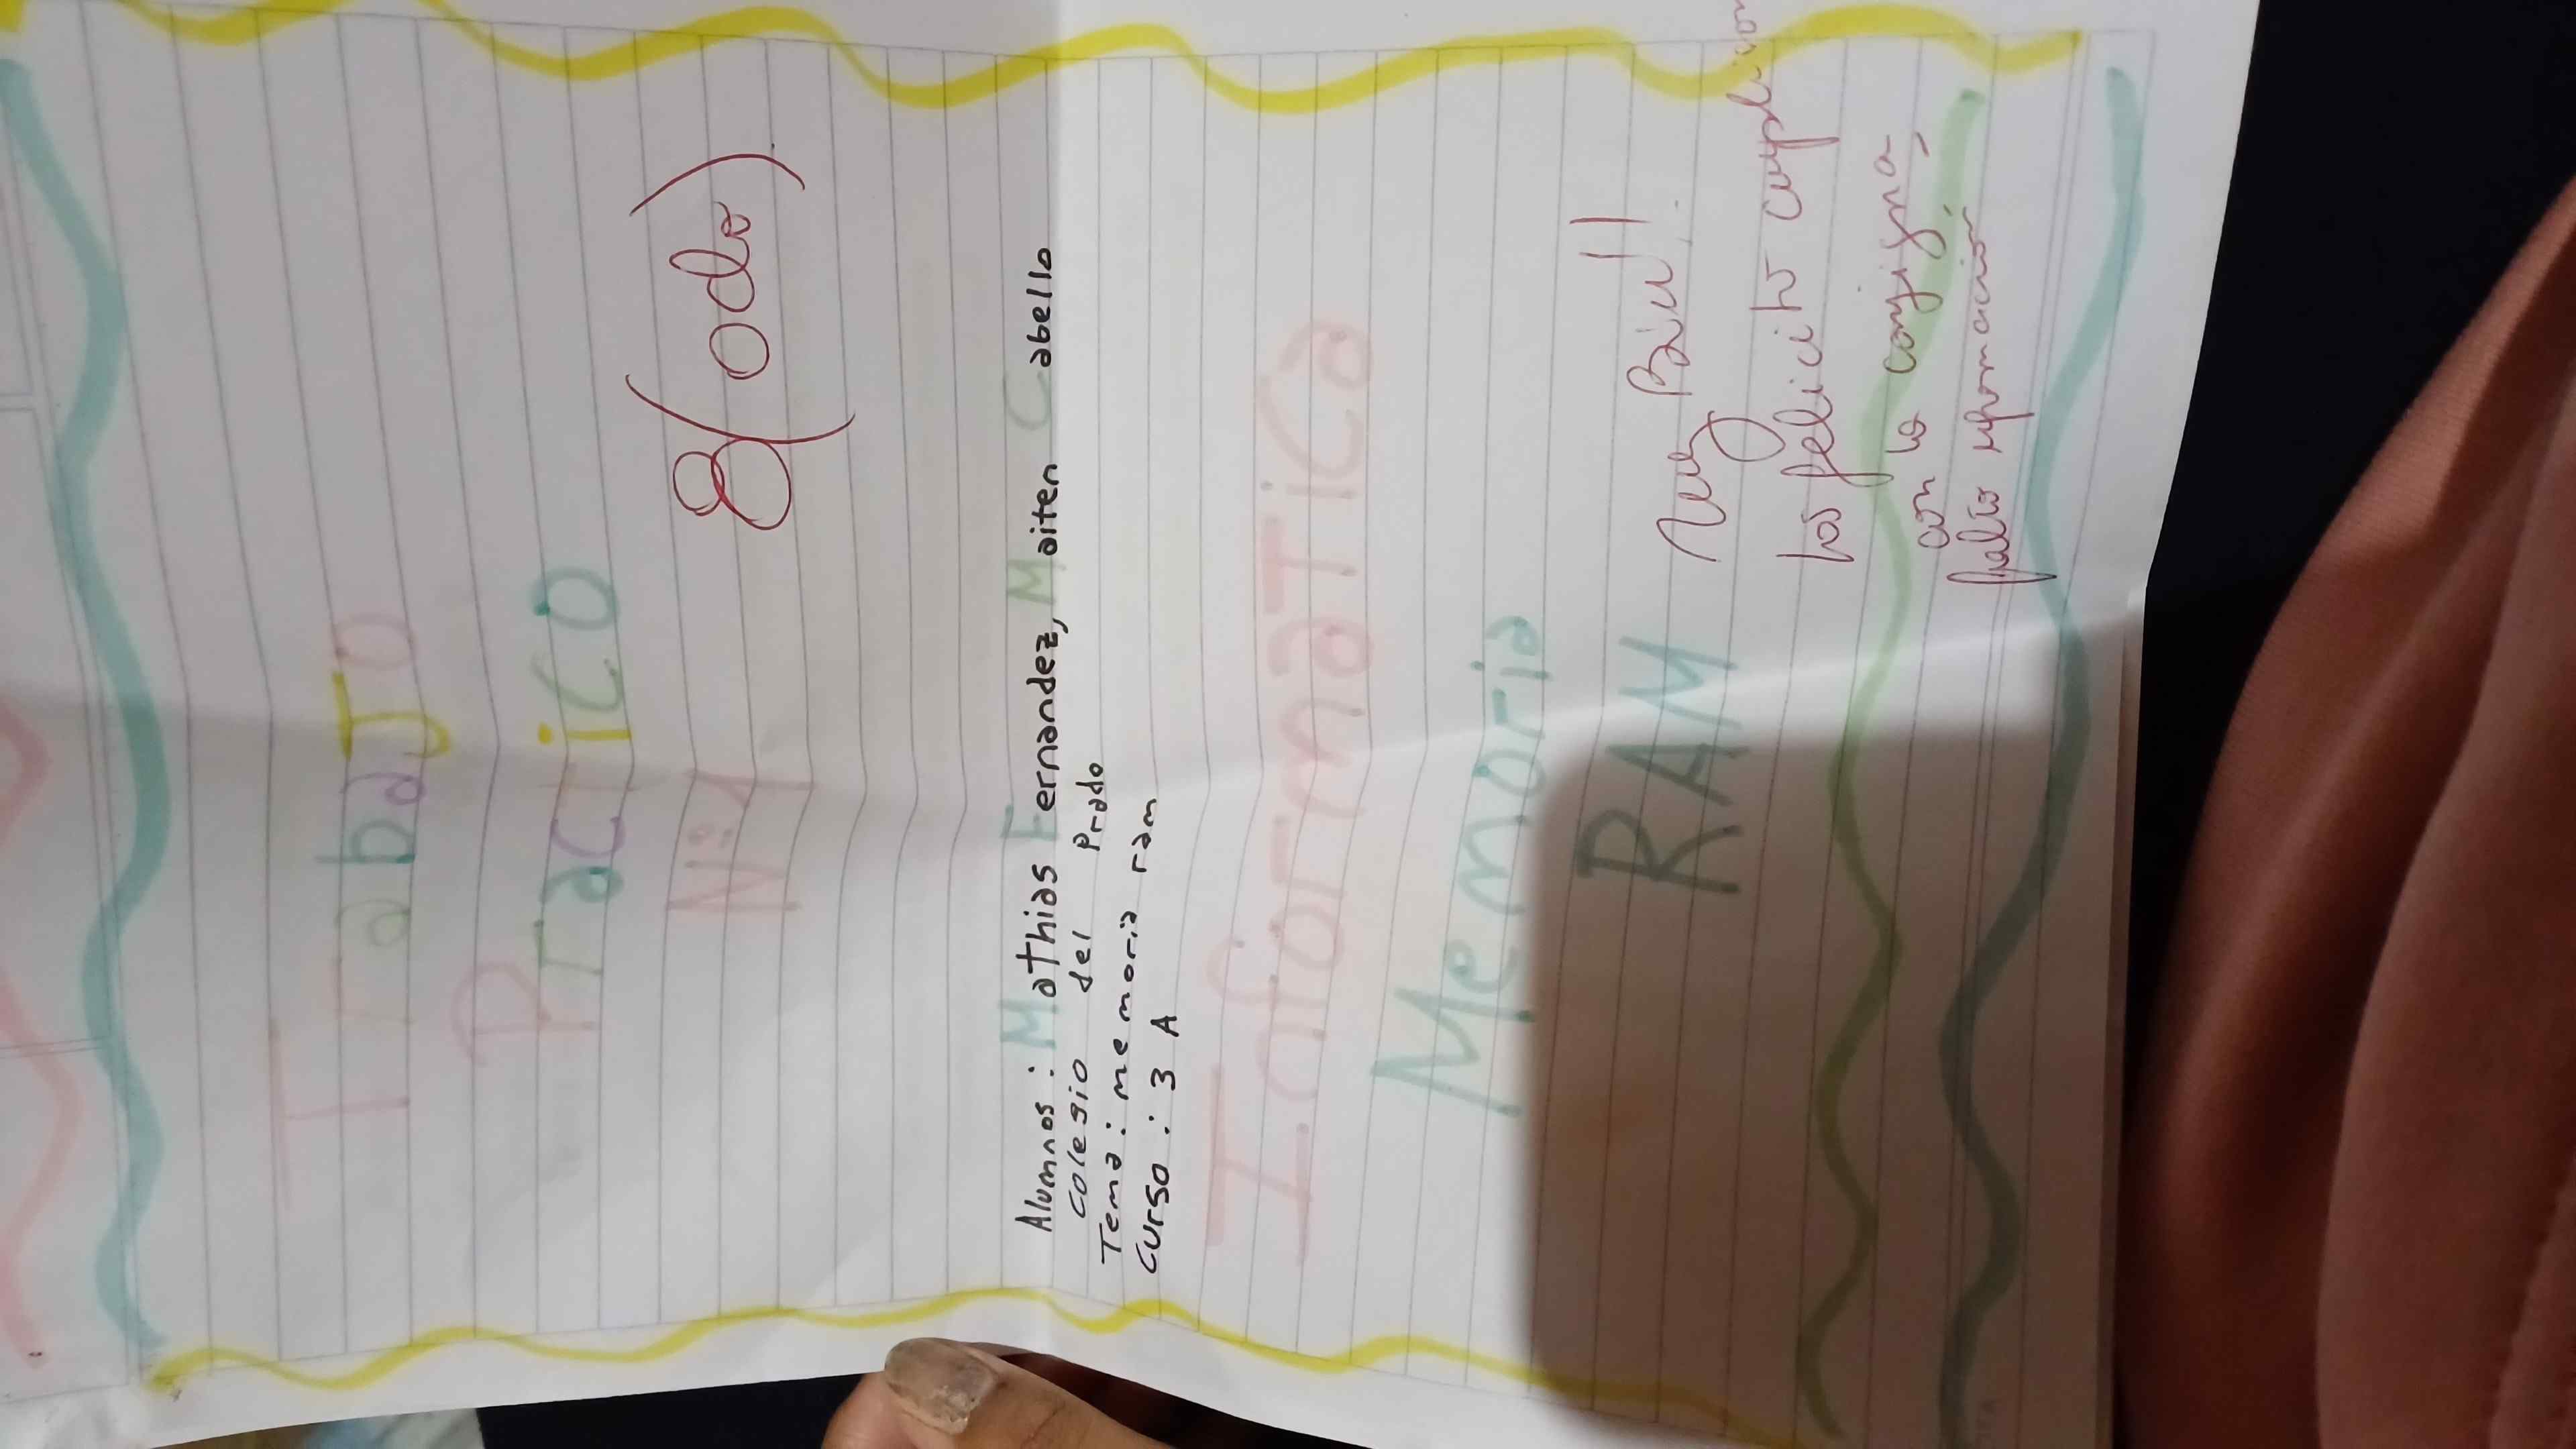 TrabaJo
PracTiCO
Nº:1
8(odo)
Alumnos: Mathias Fernandez, Maiten Cabello
colegio del Prado
Tema: memoria ram
Curso: 3 A
InformaTiCa
Memoria
RAM
Muy Bien!!
los felicito cumplieron
con la consigna,
falto información